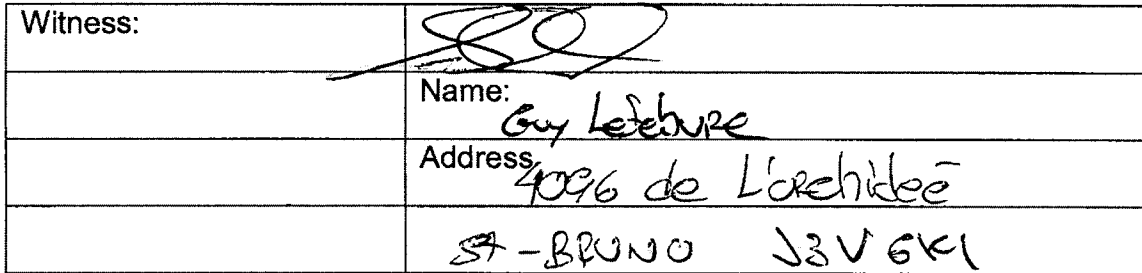 Witness:
Name: Guy Lefebvre
Address 4096 de L'orchideé
ST-BRUNO J3V 6K1